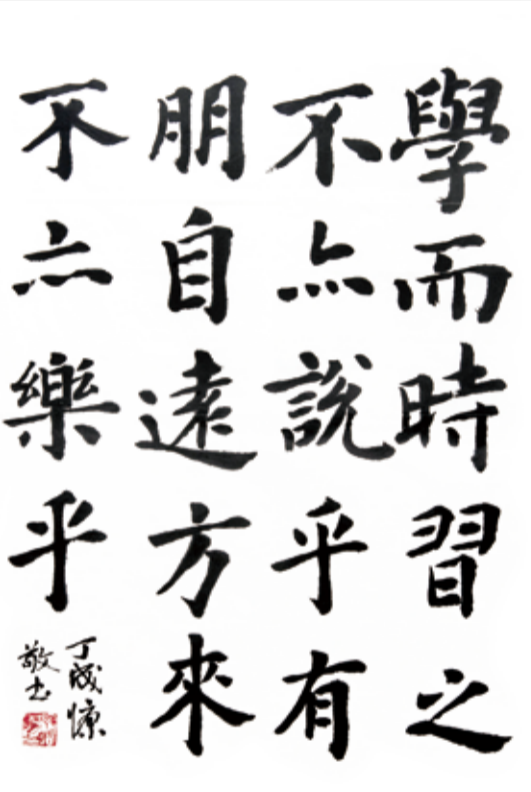 學而時習之
不亦說乎有
朋自遠方來
不亦樂乎
丁成慷
敬書